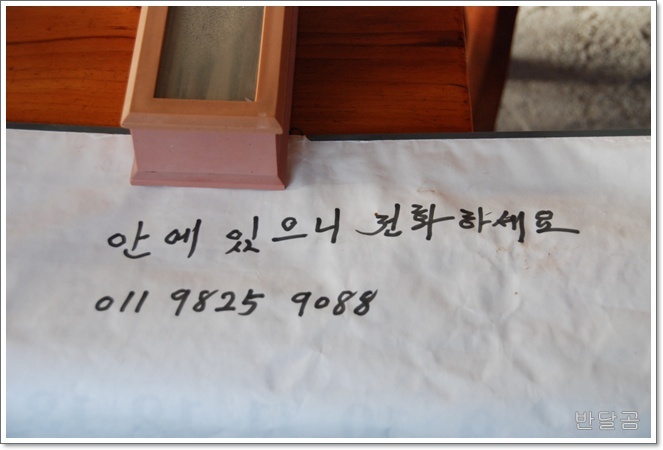 안에 있으니 전화하세요
011 9825 9088
반달곰